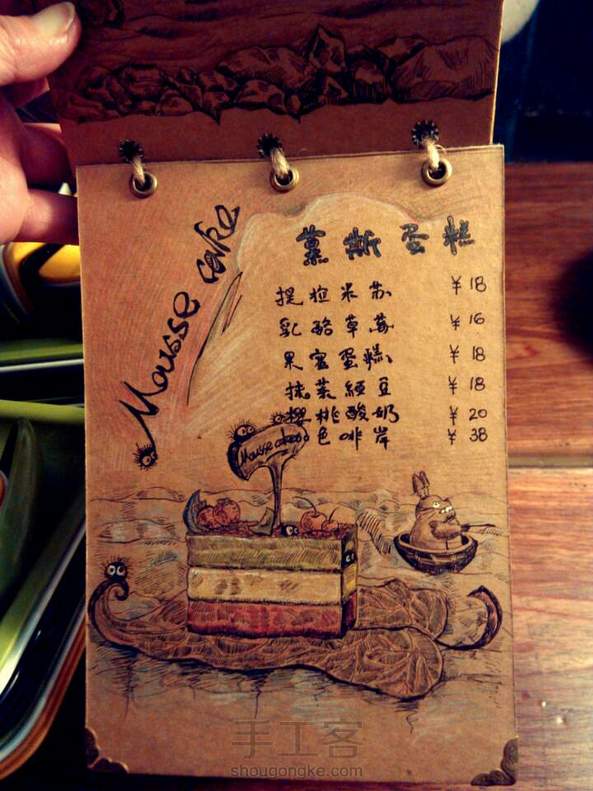 Mousse cake
慕斯蛋糕
提拉米苏 ¥18
乳酪草莓 ¥16
果蜜蛋糕 ¥18
抹茶红豆 ¥18
樱桃酸奶 ¥20
色啡岸 ¥38
Mousse cake
手工客
shougongke.com